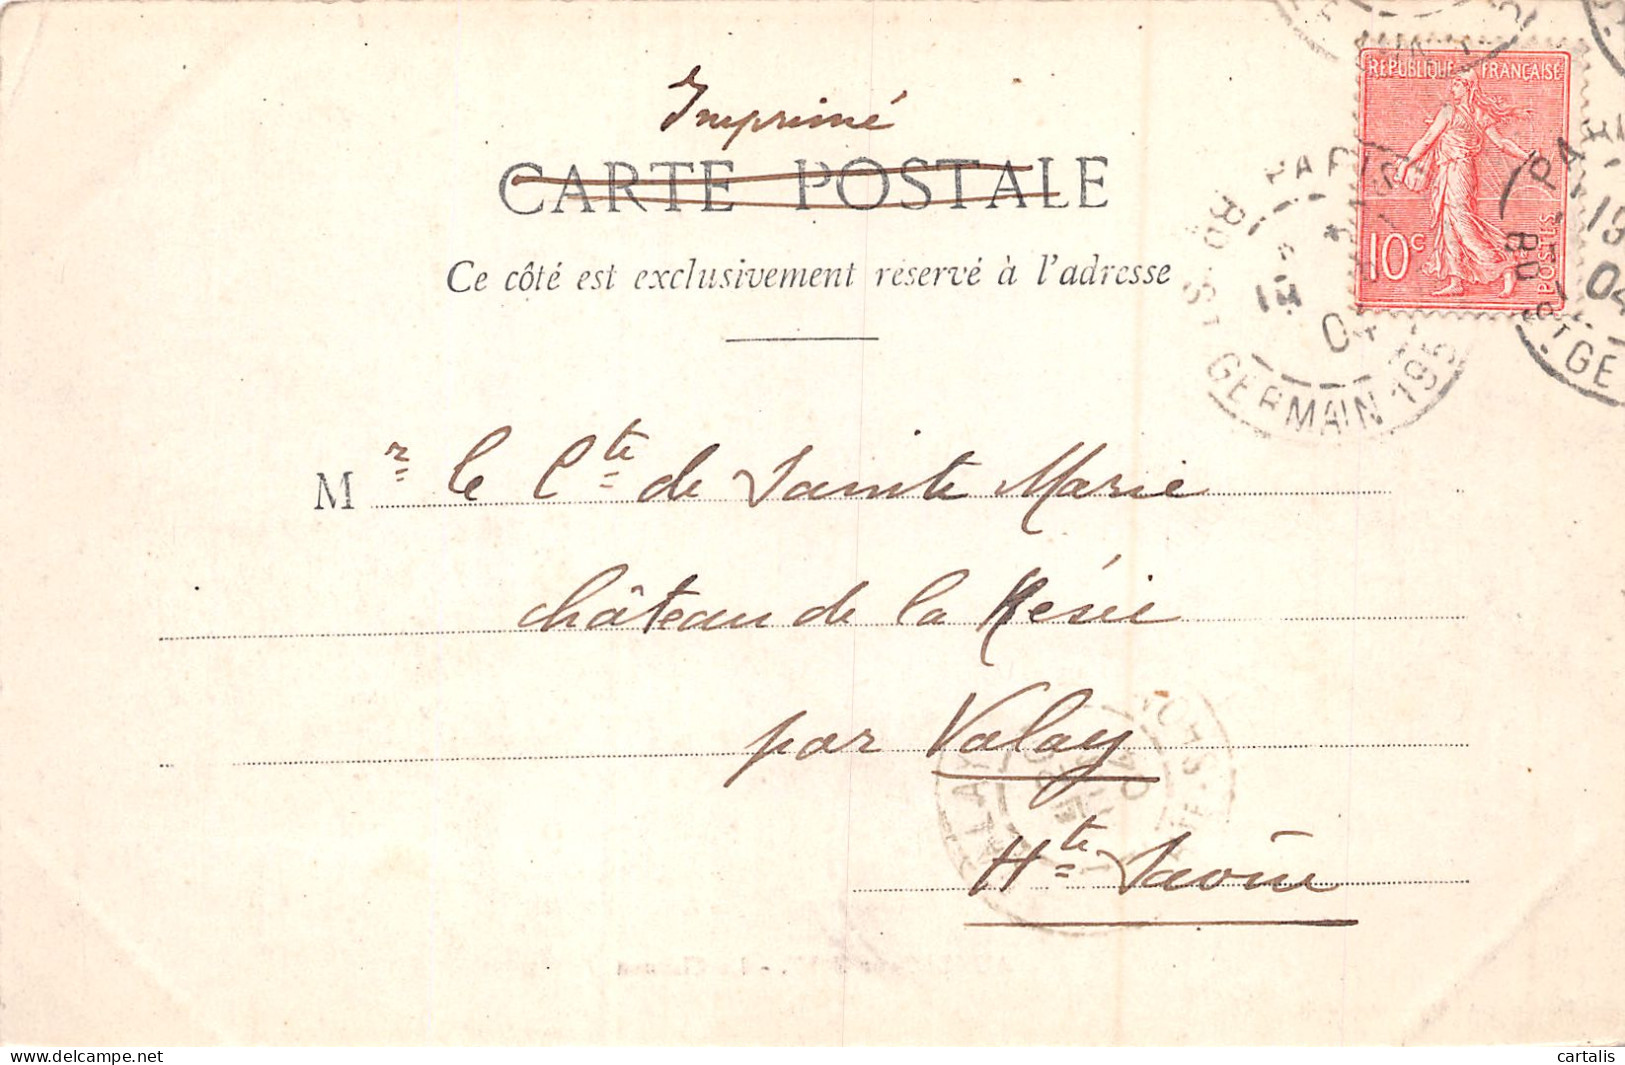 Imprimé
CARTE POSTALE
Ce côté est exclusivement réservé à l'adresse
RÉPUBLIQUE FRANÇAISE
10c
POSTES
PARIS
04
BD ST GERMAIN 195
PA
19
04
BD ST GE
Mr le Cte de Sainte Marie
château de la Résie
par Valay
Hte Saône
VALAY
Hte SAONE
cartalis